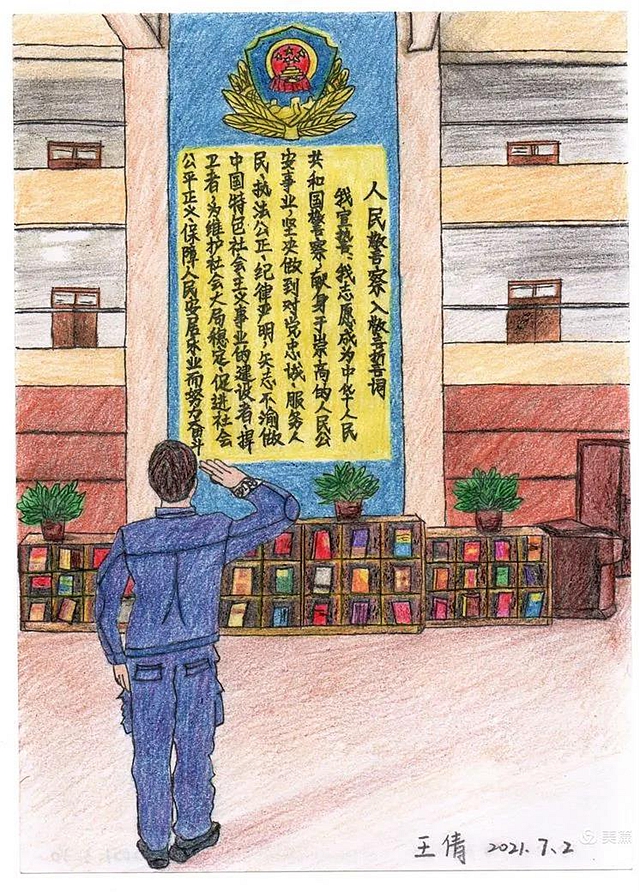 人民警察入警誓词
我宣誓、我志愿成为中华人民
共和国警察,献身于崇高的人民公
安事业,坚决做到对党忠诚、服务人
民、执法公正、纪律严明,矢志不渝做
中国特色社会主义事业的建设者、捍
卫者,为维护社会大局稳定、促进社会
公平正义、保障人民安居乐业而努力奋斗
王倩 2021.7.2
美篇